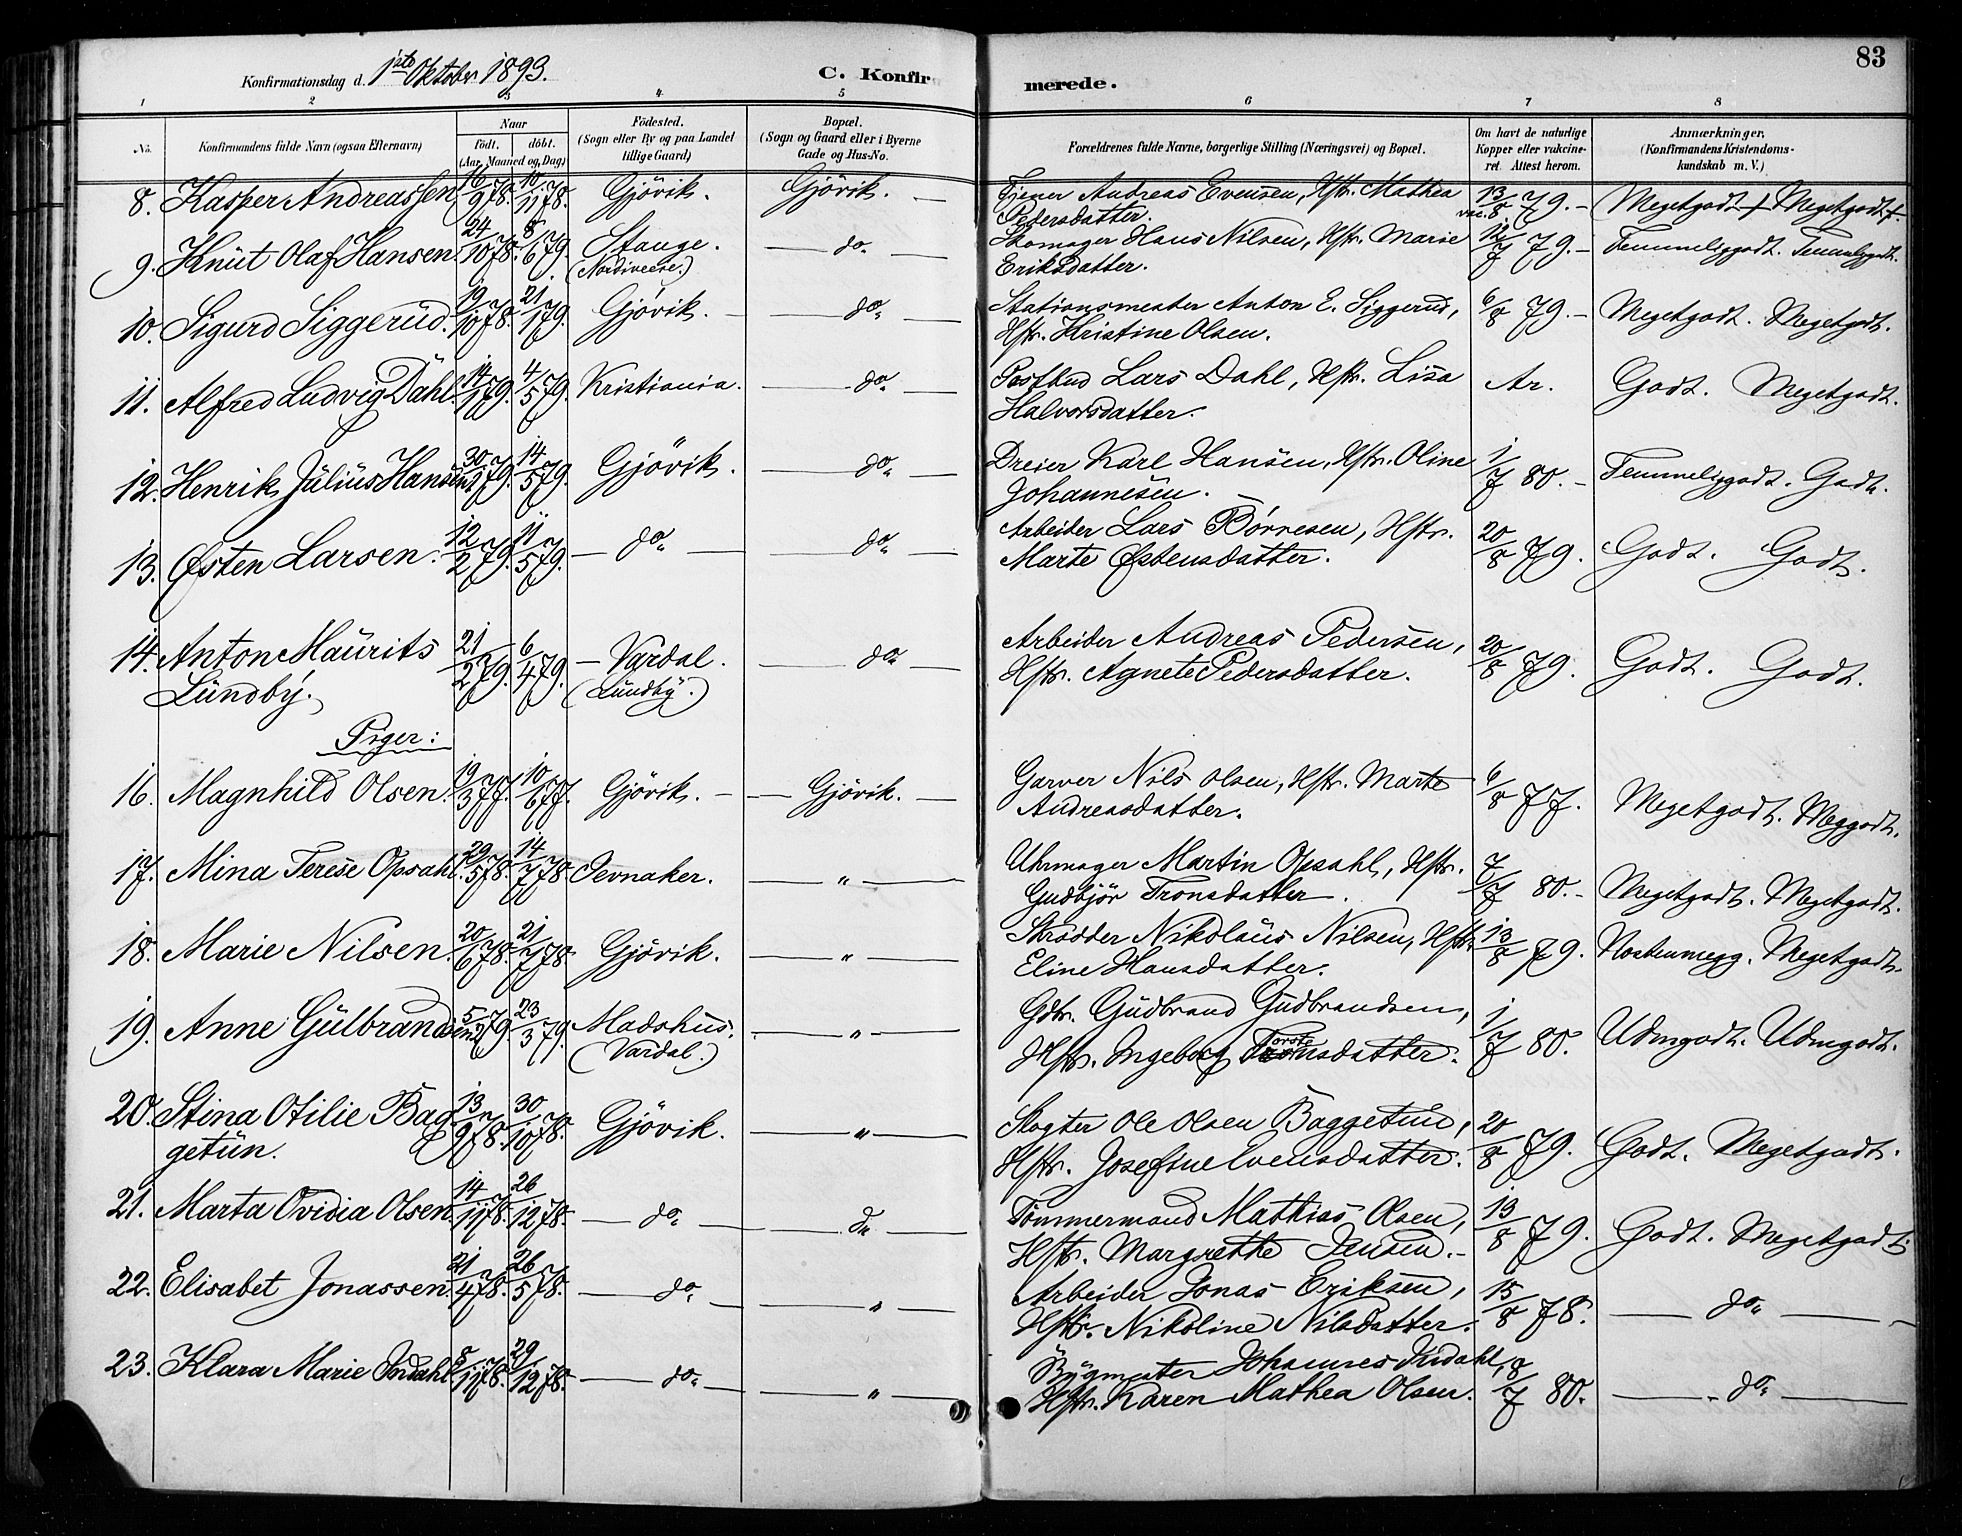 83
Konfirmationsdag d. 1ste Oktober 1893.
C. Konfirmerede.
1 2 3 4 5 6 7 8
No. Konfirmandens fulde Navn (ogsaa Efternavn) Naar født. døbt. (Aar, Maaned og Dag) Fødested. (Sogn eller By og paa Landet tillige Gaard) Bopæl. (Sogn og Gaard eller i Byerne Gade og Hus-No. Forældrenes fulde Navne, borgerlige Stilling (Næringsvei) og Bopæl. Om havt de naturlige Kopper eller vakcineret. Attest herom. Anmærkninger. (Konfirmandens Kristendomskundskab m. V.)
8. Kasper Andreassen 16/9 78. 10/11 78. Gjövik. Gjövik. — Tjener Andreas Evensen, Hstr. Mathea vac. 13/8 79. – Megetgodt + Megetgodt +
Pedersdatter.
9. Knut Olaf Hansen 24/10 78. 8/6 79. Stange. — do — Skomager Hans Nilsen, Hstr. Marie 12/7 79. – Temmeliggodt. Temmeliggodt.
Eriksdatter.
10. Sigurd Siggerud. 19/10 78. 21/1 79. Gjövik. — do — Stationsmester Anton E. Siggerud, 6/8 79. – Megetgodt. Megetgodt.
Hstr. Kristine Olsen.
11. Alfred Ludvig Dahl. 14/1 79. 4/5 79. Kristiania. — do — Postbud Lars Dahl, Hstr. Lisa Ar. Godt. Megetgodt.
Halvorsdatter.
12. Henrik Julius Hansen 30/1 79. 14/5 79. Gjövik. — do — Dreier Karl Hansen, Hstr. Oline 1/7 80. – Temmeliggodt. Godt.
Johannesen.
13. Østen Larsen. 12/2 79. 11/5 79. — do — — do — Arbeider Lars Børnesen, Hstr. 20/8 79. Godt. Godt.
Marte Østensdatter.
14. Anton Maurits 21/2 79. 6/4 79. — Vardal. — do — Arbeider Andreas Pedersen, 20/8 79. Godt. Godt.
Lundby. (Lundby.) Hstr. Agnete Pedersdatter.
Piger:
16. Magnhild Olsen. 19/3 77. 10/6 77. Gjövik. — — Gjövik. — Garver Nils Olsen, Hstr. Marte 6/8 77. Megetgodt. Meggodt.
Andreasdatter.
17. Mina Terese Opsahl. 29/5 78. 14/7 78. Jevnaker. — " — Uhrmager Martin Opsahl, Hstr. 7/7 80. – Megetgodt. Megetgodt.
Gudbjör Tronsdatter.
18. Marie Nilsen. 20/6 78. 21/7 78. Gjövik. — " — Skrædder Nikolaus Nilsen, Hstr. 13/8 79. Nostenmegg. Megetgodt.
Eline Hansdatter.
19. Anne Gulbrandsen 5/2 79. 23/3 79. Madshus. — " — Gdbr. Gudbrand Gudbrandsen, 1/7 80. Udmgodt. Udmgodt.
(Vardal.) Hstr. Ingeborg Torstensdatter.
20. Stina Otilie Bag- 13/9 78. 30/10 78. Gjövik. — " — Røgter Ole Olsen Baggetun, 20/8 79. Godt. Megetgodt.
getun. Hstr. Josefine Evensdatter.
21. Marta Ovidia Olsen. 14/11 78. 26/12 78. — do — — do — Tømmermand Mathias Olsen, 13/8 79. Godt. Megetgodt.
Hstr. Margrethe Jensen. –
22. Elisabet Jonassen. 21/4 78. 26/5 78. — do — — " — Arbeider Jonas Eriksen, 15/8 78. — do —
Hstr. Nikoline Nilsdatter.
23. Klara Marie Jordahl 8/11 78. 29/12 78. — do — — " — Bygmester Johannes Jordahl, 8/7 80. — do —
Hstr. Karen Mathea Olsen.